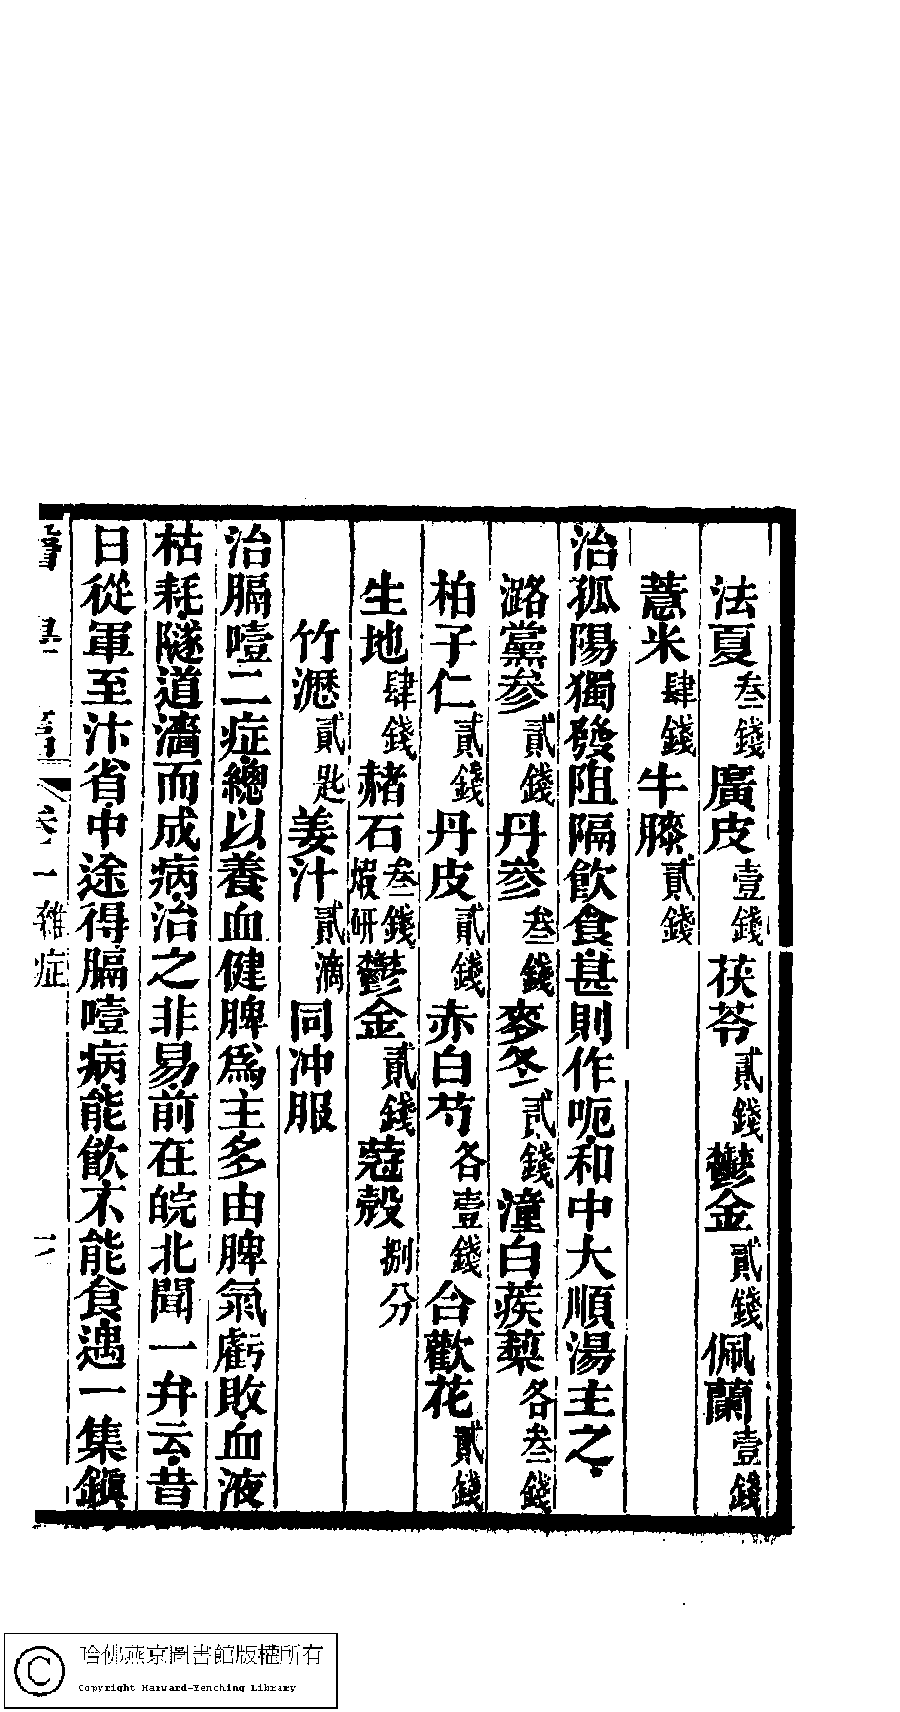 法夏叁錢廣皮壹錢茯苓貳錢鬱金貳錢佩蘭壹錢
薏米肆錢牛膝貳錢
治孤陽獨發阻隔飲食甚則作呃和中大順湯主之
潞黨參貳錢丹參叁錢麥冬貳錢潼白蒺藜各叁錢
柏子仁貳錢丹皮貳錢赤白芍各壹錢合歡花貳錢
生地肆錢赭石叁錢煅研鬱金貳錢蔻殼捌分
竹瀝貳匙姜汁貳滴同冲服
治膈噎二症總以養血健脾爲主多由脾氣虧敗血液
枯耗隧道濇而成病治之非易前在皖北聞一弁云昔
日從軍至汴省中途得膈噎病能飲不能食遇一集鎮
卷一雜症
哈佛燕京圖書館版權所有
Copyright Harvard-Yenching Library